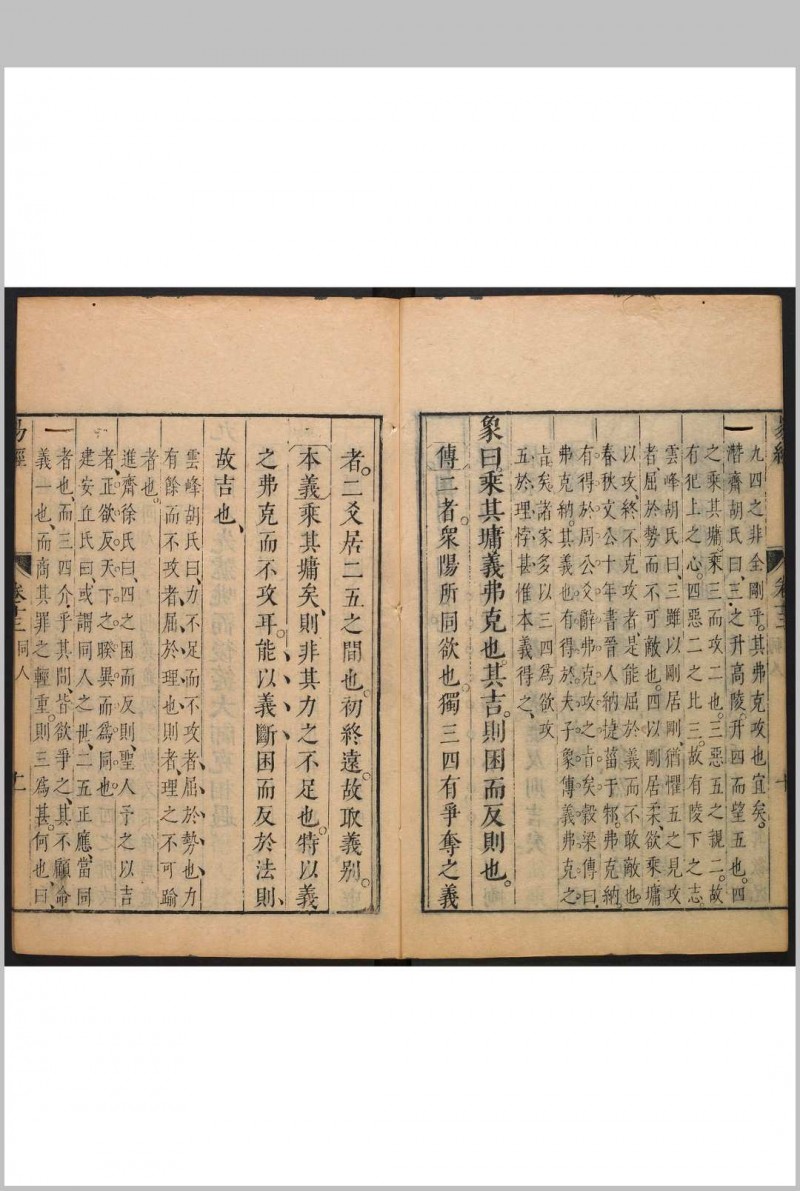 易經
卷十三
同人
十
九四之非全剛乎其弗克攻也宜矣
潛齋胡氏曰三之升高陵升四而望五也四
之乘其墉乘三而攻二也三惡五之親二故
有犯上之心四惡二之比三故有陵下之志
雲峰胡氏曰三雖以剛居剛猶懼五之見攻
者屈於勢而不可敵也四以剛居柔欲乘墉
以攻終不克攻者是能屈於義而不敢敵也
春秋文公十年書晉人納捷菑于邾弗克納
有得於周公爻辭弗克攻之旨矣穀梁傳曰
弗克納其義也有得於夫子象傳義弗克之
旨矣諸家多以三四爲欲攻
五於理悖甚惟本義得之
象曰乘其墉義弗克也其吉則困而反則也
傳二者衆陽所同欲也獨三四有爭奪之義
者二爻居二五之間也初終遠故取義別
本義乘其墉矣則非其力之不足也特以義
之弗克而不攻耳能以義斷困而反於法則
故吉也
雲峰胡氏曰力不足而不攻者屈於勢也力
有餘而不攻者屈於理也則者理之不可踰
者也
進齋徐氏曰四之困而反則聖人予之以吉
者正欲反天下之暌異而爲同也
建安丘氏曰或謂同人之世二五正應當同
者也而三四介乎其間皆欲爭之其不顧命
義一也而商其罪之輕重則三爲甚何也曰
易經
卷十三
同人
十一